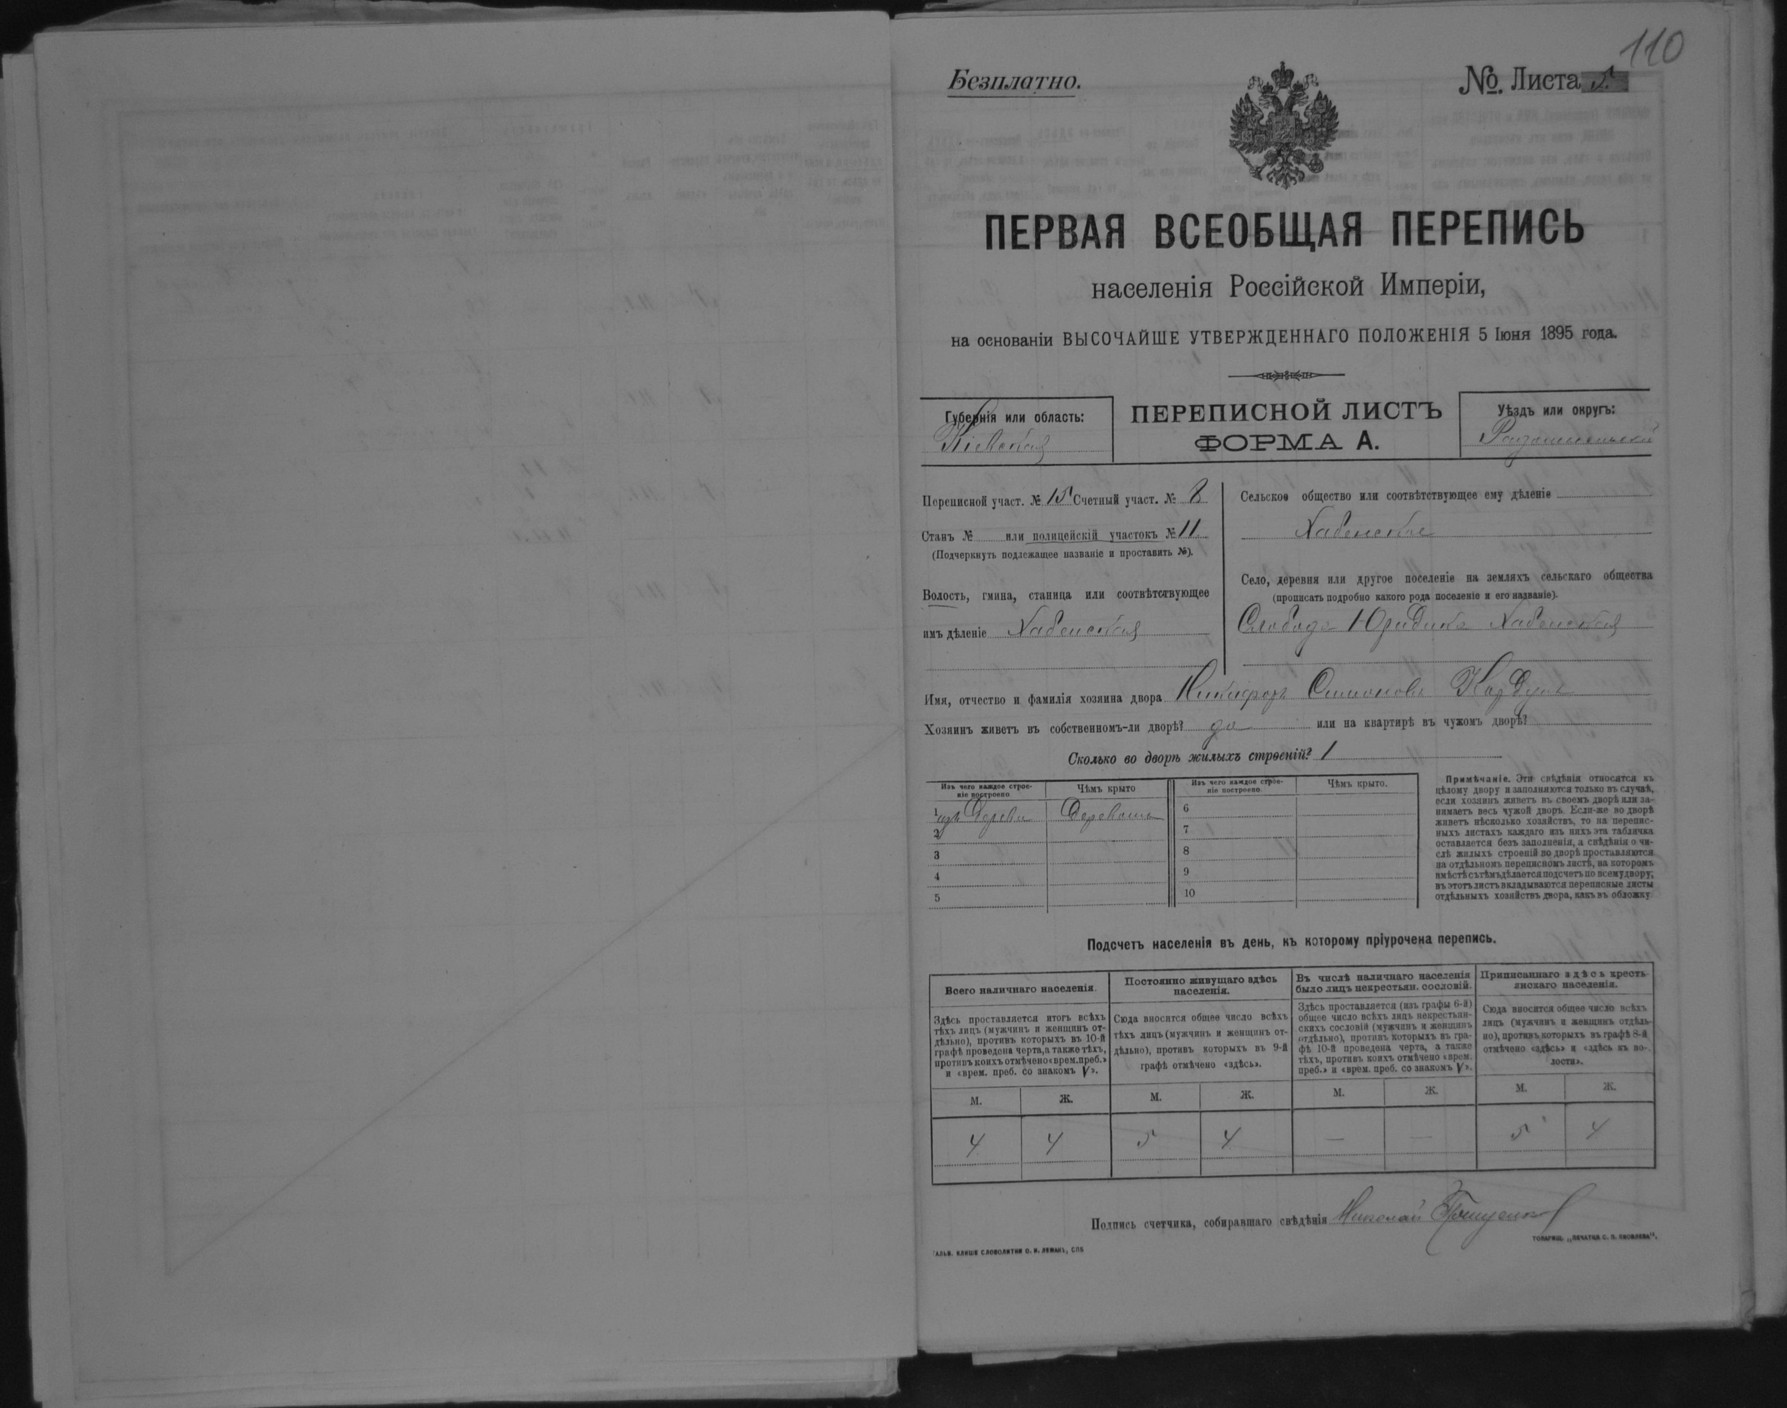 110
Безплатно.
№. Листа
ПЕРВАЯ ВСЕОБЩАЯ ПЕРЕПИСЬ
населенія Россійской Имперіи,
на основаніи ВЫСОЧАЙШЕ УТВЕРЖДЕННАГО ПОЛОЖЕНІЯ 5 Іюня 1895 года.
Губернія или область:
Кіевская
ПЕРЕПИСНОЙ ЛИСТЪ
ФОРМА А.
Уѣздъ или округъ:
Радомысльскій
Переписной участ. № 15 Счетный участ. № 8
Станъ № или полицейскій участокъ № 11
(Подчеркнуть подлежащее названіе и проставить №).
Волость, гмина, станица или соотвѣтствующее
имъ дѣленіе Хабенская
Сельское общество или соотвѣтствующее ему дѣленіе
Хабенское
Село, деревня или другое поселеніе на земляхъ сельскаго общества
(прописать подробно какого рода поселеніе и его названіе).
Слобода Юридика Хабенская
Имя, отчество и фамилія хозяина двора Никифоръ Симоновъ
Хозяинъ живетъ въ собственномъ-ли дворѣ? да или на квартирѣ въ чужомъ дворѣ?
Сколько во дворѣ жилыхъ строеній? 1
Изъ чего каждое строе-
ніе построено
Чѣмъ крыто
Изъ чего каждое строе-
ніе построено
Чѣмъ крыто.
1 изъ дерева Деревомъ
2
3
4
5
6
7
8
9
10
Примѣчаніе. Эти свѣдѣнія относятся къ
цѣлому двору и заполняются только въ случаѣ,
если хозяинъ живетъ въ своемъ дворѣ или за-
нимаетъ весь чужой дворъ. Если-же во дворѣ
живетъ нѣсколько хозяйствъ, то на перепис-
ныхъ листахъ каждаго изъ нихъ эта табличка
оставляется безъ заполненія, а свѣдѣнія о чи-
слѣ жилыхъ строеній во дворѣ проставляются
на отдѣльномъ переписномъ листѣ, на которомъ
вмѣстѣ съ тѣмъ дѣлается подсчетъ по всему двору;
въ этотъ листъ вкладываются переписные листы
отдѣльныхъ хозяйствъ двора, какъ въ обложку
Подсчетъ населенія въ день, къ которому пріурочена перепись.
Всего наличнаго населенія.
Здѣсь проставляется итогъ всѣхъ
тѣхъ лицъ (мужчинъ и женщинъ от-
дѣльно), противъ которыхъ въ 10-й
графѣ проведена черта, а также тѣхъ,
противъ коихъ отмѣчено «врем. преб.»
и «врем. преб. со знакомъ V».
Постоянно живущаго здѣсь
населенія.
Сюда вносится общее число всѣхъ
тѣхъ лицъ (мужчинъ и женщинъ от-
дѣльно), противъ которыхъ въ 9-й
графѣ отмѣчено «здѣсь».
Въ числѣ наличнаго населенія
было лицъ некрестьян. сословій.
Здѣсь проставляется (изъ графы 6-й)
общее число всѣхъ лицъ некрестьян-
скихъ сословій (мужчинъ и женщинъ
отдѣльно), противъ которыхъ въ гра-
фѣ 10-й проведена черта, а также
тѣхъ, противъ коихъ отмѣчено «врем.
преб.» и «врем. преб. со знакомъ V».
Приписаннаго здѣсь кресть-
янскаго населенія.
Сюда вносится общее число всѣхъ
лицъ (мужчинъ и женщинъ отдѣль-
но), противъ которыхъ въ графѣ 8-й
отмѣчено «здѣсь» и «здѣсь въ во-
лости».
М. Ж. М. Ж. М. Ж. М. Ж.
4 4 5 4 — — 5 4
Подпись счетчика, собиравшаго свѣдѣнія Николай
ГАЛЬВ. КЛИШЕ СЛОВОЛИТНИ О. И. ЛЕМАНЪ, СПБ
ТОВАРИЩ. „ПЕЧАТНЯ С. П. ЯКОВЛЕВА“.